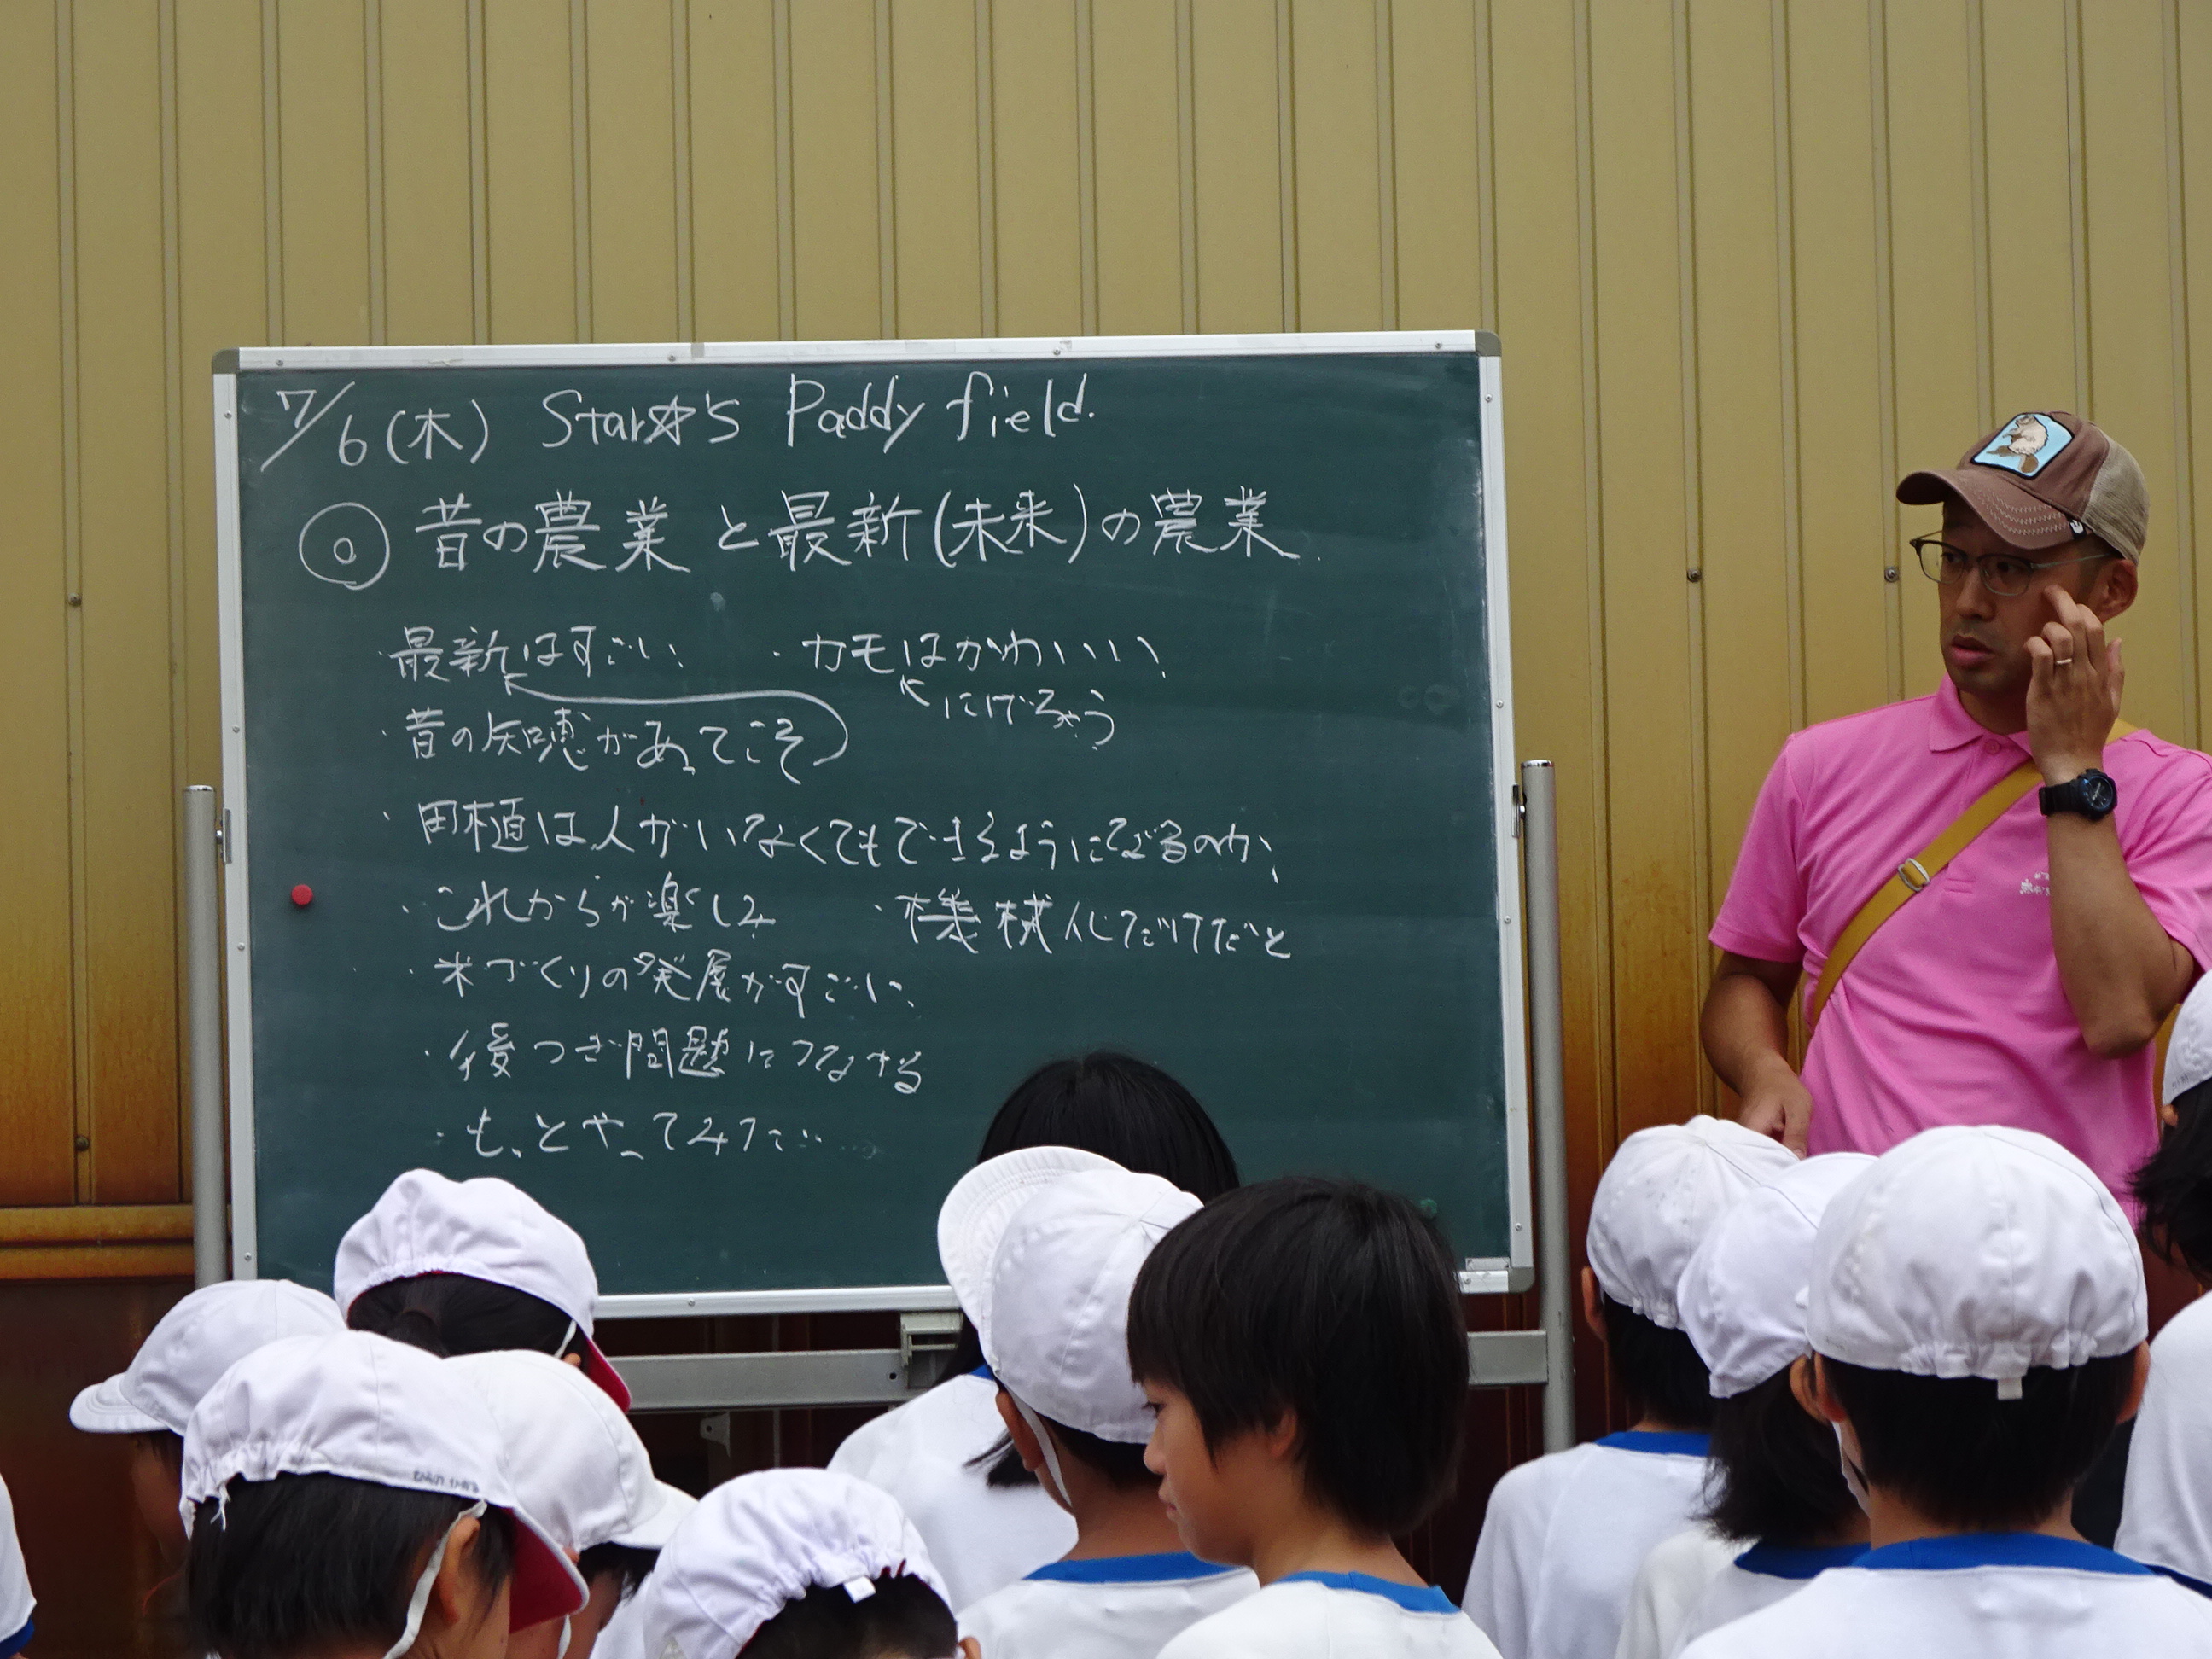 7/6(木) Star☆'s Paddy field.
◎ 昔の農業と最新(未来)の農業
・最新はすごい ・カモはかわいい
にげちゃう
・昔の知恵があってこそ
・田植は人がいなくてもできるようになるのか
・これからが楽しみ ・機械化だけだと
・米づくりの発展がすごい
・後つぎ問題につながる
・もっとやってみたい